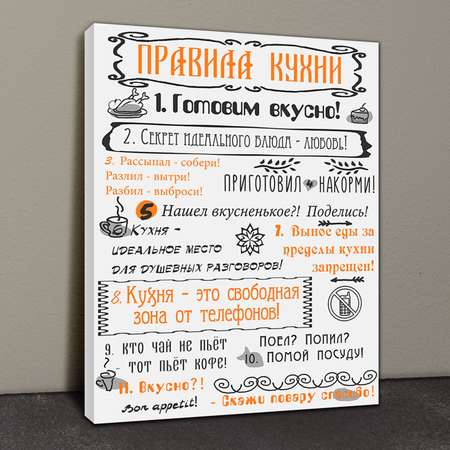 ПРАВИЛА КУХНИ
1. Готовим вкусно!
2. Секрет идеального блюда - любовь!
3. Рассыпал - собери!
Разлил - вытри!
Разбил - выброси!
ПРИГОТОВИЛ НАКОРМИ!
5 Нашел вкусненькое?! Поделись!
6. Кухня -
идеальное место
для душевных разговоров!
7. Вынос еды за
пределы кухни
запрещен!
8. Кухня - это свободная
зона от телефонов!
9. кто чай не пьёт
- тот пьёт кофе!
10. Поел? Попил?
Помой посуду!
11. Вкусно?!
- Скажи повару спасибо!
Bon appetit!